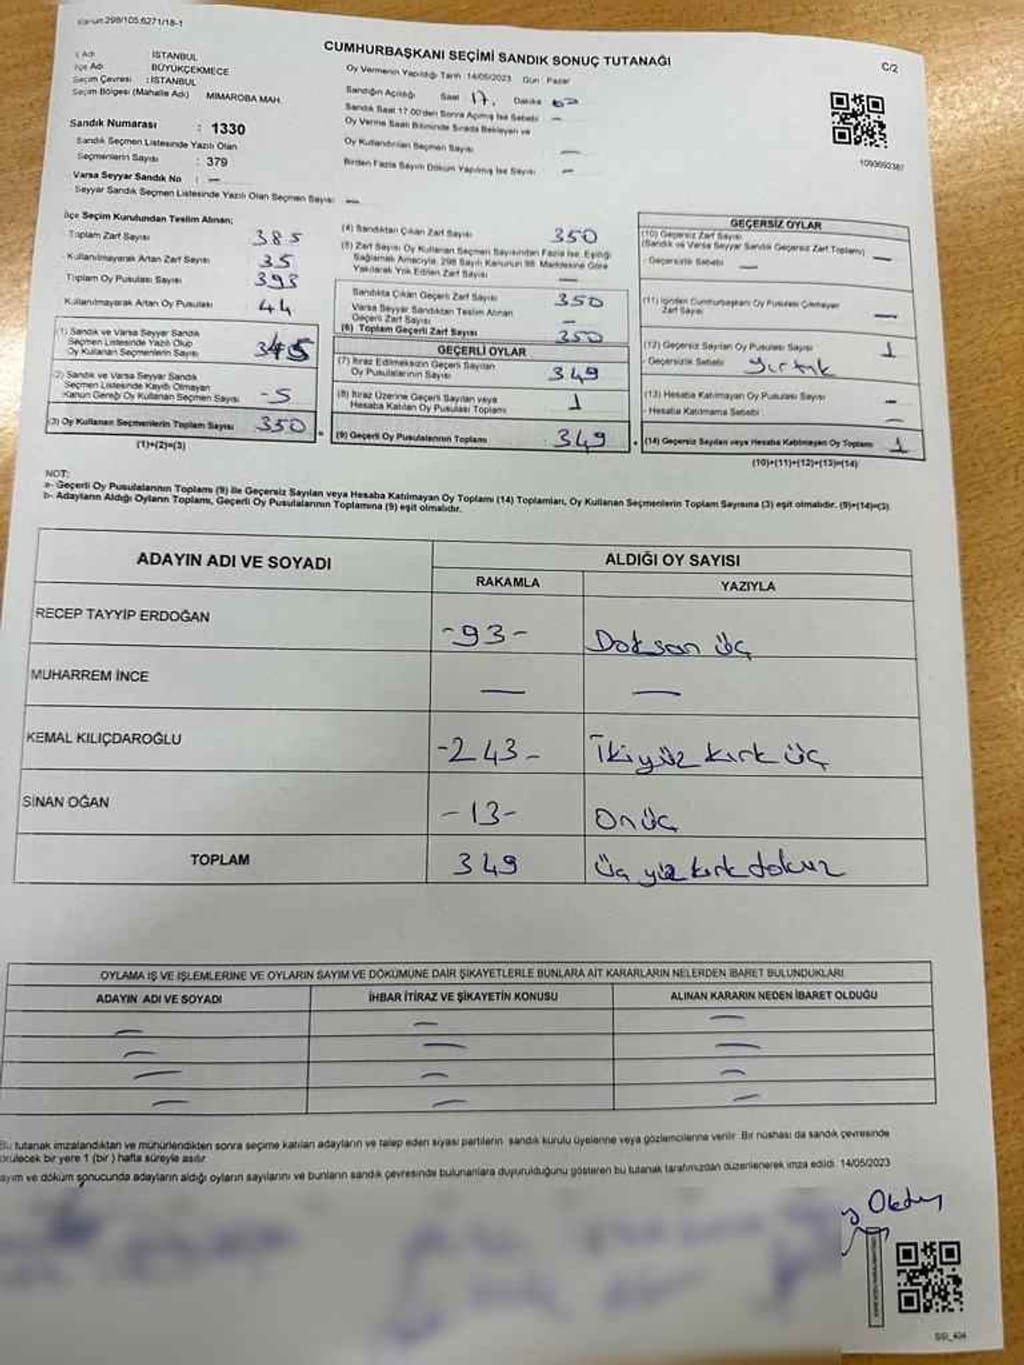 Kanun:298/105;6271/18-1
CUMHURBAŞKANI SEÇİMİ SANDIK SONUÇ TUTANAĞI
C/2
İl Adı : İSTANBUL
İlçe Adı : BÜYÜKÇEKMECE
Seçim Çevresi : İSTANBUL
Seçim Bölgesi (Mahalle Adı) MİMAROBA MAH.
Sandık Numarası : 1330
Sandık Seçmen Listesinde Yazılı Olan
Seçmenlerin Sayısı : 379
Varsa Seyyar Sandık No : —
Seyyar Sandık Seçmen Listesinde Yazılı Olan Seçmen Sayısı —
Oy Vermenin Yapıldığı Tarih :14/05/2023 Gün : Pazar
Sandığın Açıldığı Saat 17. Dakika
Sandık Saat 17.00'den Sonra Açılmış İse Sebebi —
Oy Verme Saati Bitiminde Sırada Bekleyen ve
Oy Kullandırılan Seçmen Sayısı —
Birden Fazla Sayım Döküm Yapılmış İse Sayısı —
1093692387
İlçe Seçim Kurulundan Teslim Alınan;
Toplam Zarf Sayısı 385
Kullanılmayarak Artan Zarf Sayısı 35
Toplam Oy Pusulası Sayısı 393
Kullanılmayarak Artan Oy Pusulası 44
(1) Sandık ve Varsa Seyyar Sandık
Seçmen Listesinde Yazılı Olup
Oy Kullanan Seçmenlerin Sayısı 345
(2) Sandık ve Varsa Seyyar Sandık
Seçmen Listesinde Kayıtlı Olmayan
Kanun Gereği Oy Kullanan Seçmen Sayısı -5
(3) Oy Kullanan Seçmenlerin Toplam Sayısı 350
(1)+(2)=(3)
(4) Sandıktan Çıkan Zarf Sayısı 350
(5) Zarf Sayısı Oy Kullanan Seçmen Sayısından Fazla İse, Eşitliği
Sağlamak Amacıyla, 298 Sayılı Kanunun 98. Maddesine Göre
Yakılarak Yok Edilen Zarf Sayısı —
Sandıkta Çıkan Geçerli Zarf Sayısı 350
Varsa Seyyar Sandıktan Teslim Alınan
Geçerli Zarf Sayısı —
(6) Toplam Geçerli Zarf Sayısı 350
GEÇERLİ OYLAR
(7) İtiraz Edilmeksizin Geçerli Sayılan
Oy Pusulalarının Sayısı 349
(8) İtiraz Üzerine Geçerli Sayılan veya
Hesaba Katılan Oy Pusulası Toplamı 1
(9) Geçerli Oy Pusulalarının Toplamı 349
GEÇERSİZ OYLAR
(10) Geçersiz Zarf Sayısı
(Sandık ve Varsa Seyyar Sandık Geçersiz Zarf Toplamı) —
- Geçersizlik Sebebi —
(11) İçinden Cumhurbaşkanı Oy Pusulası Çıkmayan
Zarf Sayısı —
(12) Geçersiz Sayılan Oy Pusulası Sayısı 1
- Geçersizlik Sebebi Yırtık
(13) Hesaba Katılmayan Oy Pusulası Sayısı —
- Hesaba Katılmama Sebebi —
(14) Geçersiz Sayılan veya Hesaba Katılmayan Oy Toplamı 1
(10)+(11)+(12)+(13)=(14)
NOT:
a- Geçerli Oy Pusulalarının Toplamı (9) ile Geçersiz Sayılan veya Hesaba Katılmayan Oy Toplamı (14) Toplamları, Oy Kullanan Seçmenlerin Toplam Sayısına (3) eşit olmalıdır. (9)+(14)=(3)
b- Adayların Aldığı Oyların Toplamı, Geçerli Oy Pusulalarının Toplamına (9) eşit olmalıdır.
ADAYIN ADI VE SOYADI ALDIĞI OY SAYISI
RAKAMLA YAZIYLA
RECEP TAYYİP ERDOĞAN -93- Doksan üç
MUHARREM İNCE — —
KEMAL KILIÇDAROĞLU -243- İkiyüz kırk üç
SİNAN OĞAN -13- Onüç
TOPLAM 349 Üç yüz kırk dokuz
OYLAMA İŞ VE İŞLEMLERİNE VE OYLARIN SAYIM VE DÖKÜMÜNE DAİR ŞİKAYETLERLE BUNLARA AİT KARARLARIN NELERDEN İBARET BULUNDUKLARI
ADAYIN ADI VE SOYADI İHBAR İTİRAZ VE ŞİKAYETİN KONUSU ALINAN KARARIN NEDEN İBARET OLDUĞU
— — —
— — —
— — —
— — —
Bu tutanak imzalandıktan ve mühürlendikten sonra seçime katılan adayların ve talep eden siyasi partilerin sandık kurulu üyelerine veya gözlemcilerine verilir. Bir nüshası da sandık çevresinde
bir yere 1 (bir) hafta süreyle asılır.
ayım ve döküm sonucunda adayların aldığı oyların sayılarını ve bunların sandık çevresinde bulunanlara duyurulduğunu gösteren bu tutanak tarafımızdan düzenlenerek imza edildi. 14/05/2023